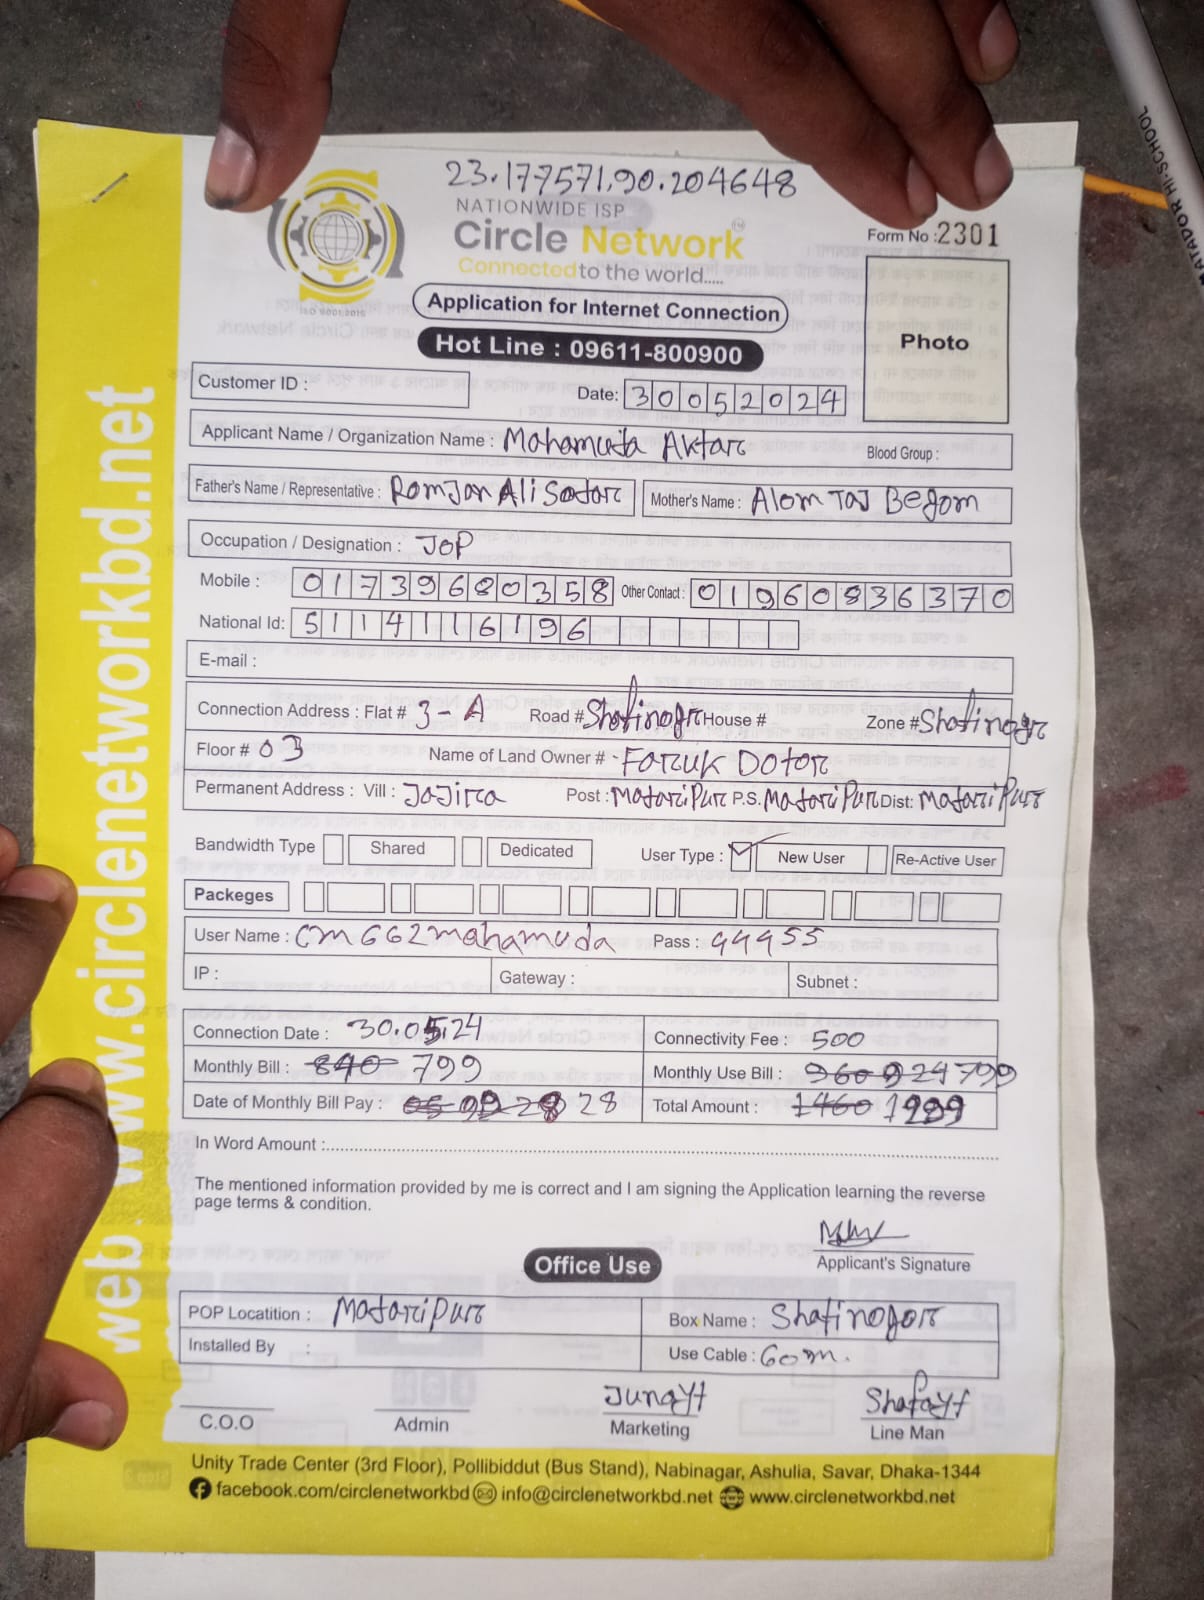 23.177571,90.204648
NATIONWIDE ISP
Circle Network
Connected to the world.....
Form No :2301
ISO 9001:2015
Application for Internet Connection
Photo
Hot Line : 09611-800900
Customer ID :
Date: 30052024
Applicant Name / Organization Name : Mahamuda Aktar
Blood Group :
Father's Name / Representative : RomJan Ali Sadar Mother's Name : Alom Taj Begom
Occupation / Designation : JOP
Mobile : 01739680358 Other Contact : 01960836370
National Id: 5114116196
E-mail :
Connection Address : Flat # 3-A Road # Shafinogr House # Zone # Shafinogr
Floor # 03 Name of Land Owner # - Faruk Dotor
Permanent Address : Vill : JaJira Post : Madaripur P.S. Madaripur Dist: Madaripur
Bandwidth Type Shared Dedicated User Type : New User Re-Active User
Packeges
User Name : cm662mahamuda Pass : 44455
IP : Gateway : Subnet :
Connection Date : 30.05.24 Connectivity Fee : 500
Monthly Bill : 840 799 Monthly Use Bill : 960 924 799
Date of Monthly Bill Pay : 05 28 Total Amount : 1460
In Word Amount :
The mentioned information provided by me is correct and I am signing the Application learning the reverse
page terms & condition.
Applicant's Signature
Office Use
POP Locatition : Madaripur Box Name : Shafinogor
Installed By : Use Cable : 60m.
Junayt Shafayt
C.O.O Admin Marketing Line Man
Unity Trade Center (3rd Floor), Pollibiddut (Bus Stand), Nabinagar, Ashulia, Savar, Dhaka-1344
facebook.com/circlenetworkbd info@circlenetworkbd.net www.circlenetworkbd.net
web : www.circlenetworkbd.net
MATADOR HI-SCHOOL